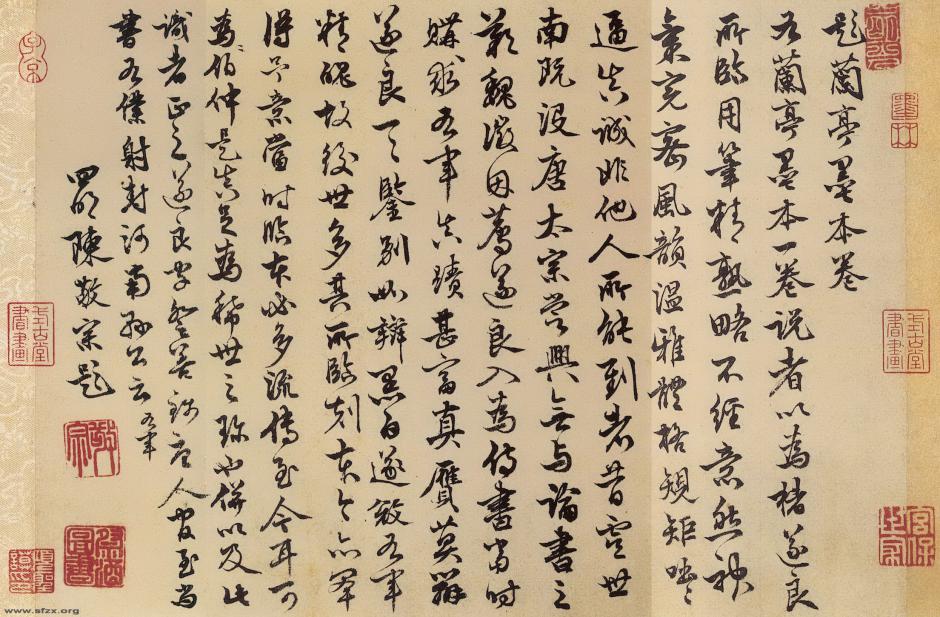 題蘭亭墨本卷
右蘭亭墨本一卷說者以為褚遂良
所臨用筆精熟略不經意然神
氣完密風韻溫雅體格規矩咄咄
逼真誠非他人所能到者昔虞世
南既没唐太宗嘗興無與論書之
歎魏徵因薦遂良入為侍書當時
購求右軍真蹟甚富真贋莫辨
遂良一一鑒別如辨黑白遂敘右軍
精故後世多其所臨刻本今亦罕
得意當時臨本必多流傳至今耳可
為伯仲是真足為稀世之珍也併以及此
識者正之遂良字登善錢唐人官至尚
書右僕射封河南郡公云 右軍
四明陳敬宗題
敬宗
式古堂書畫
式古堂書畫
www.sfzx.org